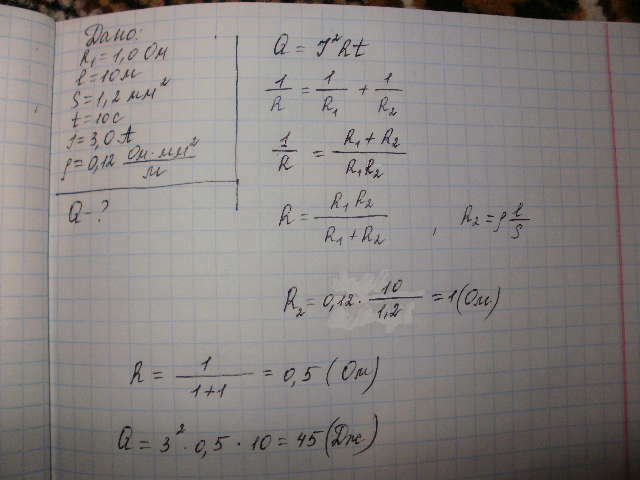 Дано:
R₁ = 1,0 Ом
l = 10 м
S = 1,2 мм²
t = 10 с
I = 3,0 А
ρ = 0,12 Ом·мм²/м
Q - ?
Q = I²Rt
1/R = 1/R₁ + 1/R₂
1/R = (R₁ + R₂)/(R₁R₂)
R = R₁R₂/(R₁ + R₂) , R₂ = ρ l/S
R₂ = 0,12 · 10/1,2 = 1 (Ом)
R = 1/(1+1) = 0,5 (Ом)
Q = 3² · 0,5 · 10 = 45 (Дж)